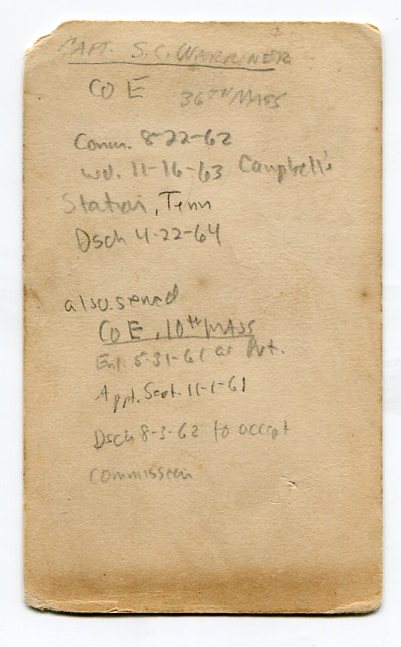 CAPT. S. C. WARRINER
CO E 36TH MASS
Comm. 8-22-62
wd. 11-16-63 Campbell's
Station, Tenn
Dsch 4-22-64
also served
CO E, 10th MASS
Enl. 5-31-61 as Pvt.
Appt. Sept. 11-1-61
Dsch 8-3-62 to accept
commission